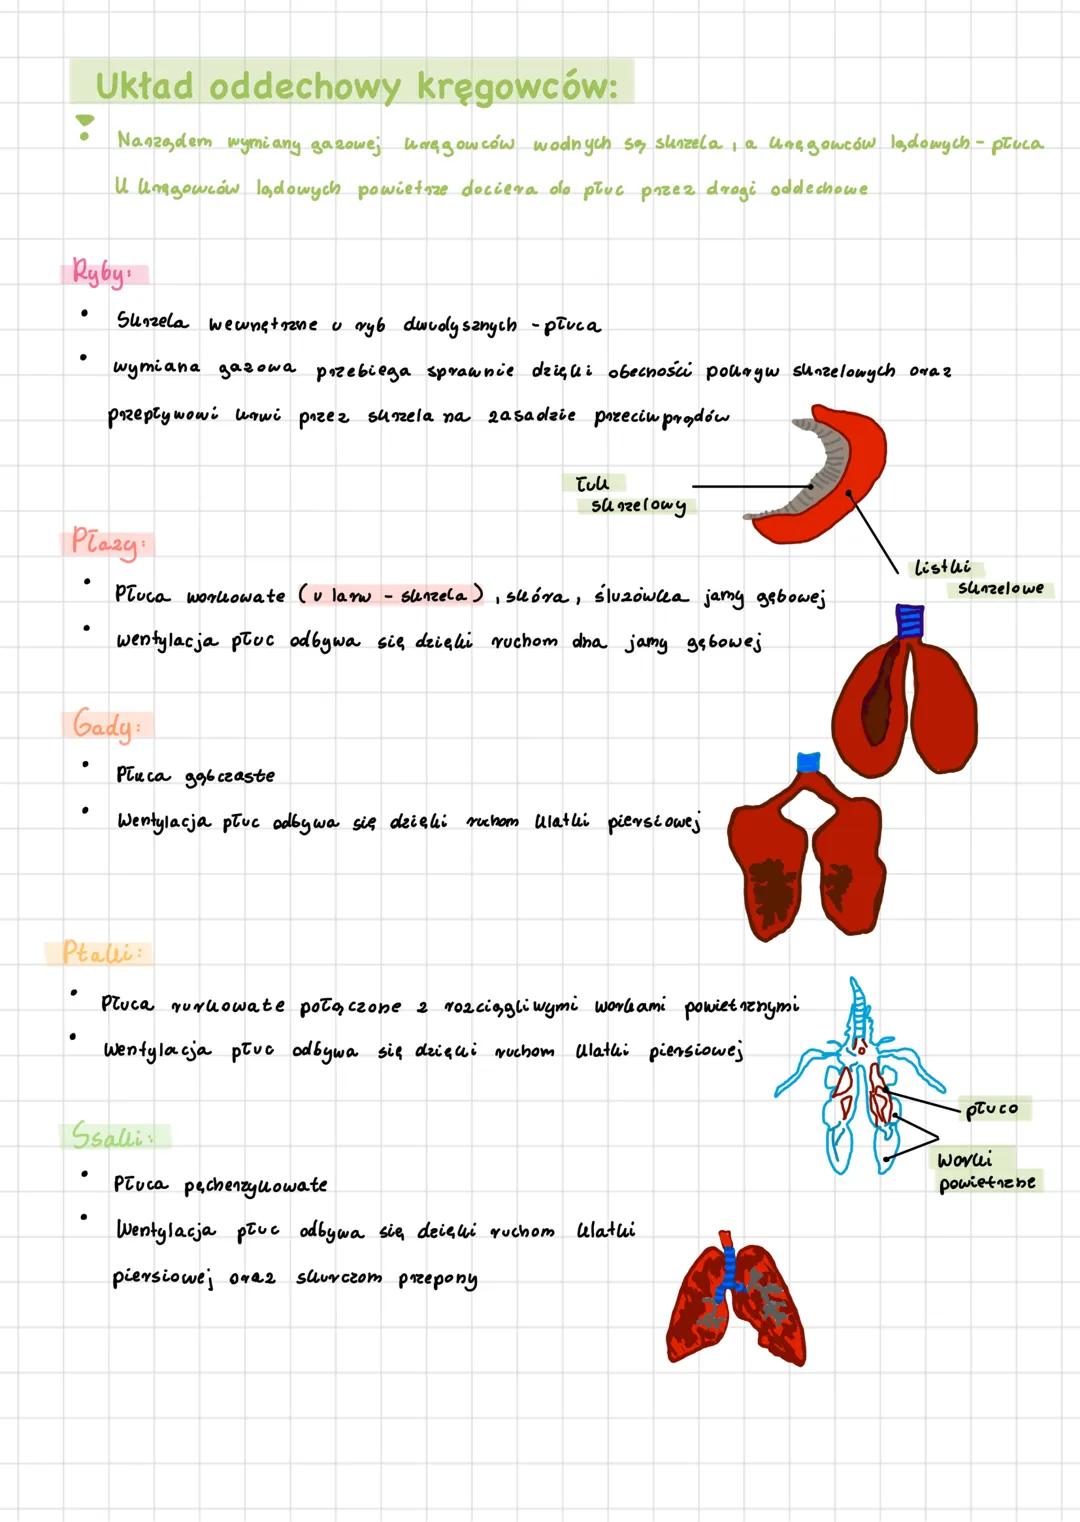 Układ oddechowy kręgowców:
Narządem wymiany gazowej kręgowców wodnych są skrzela, a kręgowców lądowych - płuca
U kręgowców lądowych powietrze dociera do płuc przez drogi oddechowe
Ryby:
Skrzela wewnętrzne u ryb dwudysznych - płuca
wymiana gazowa przebiega sprawnie dzięki obecności pokryw skrzelowych oraz
przepływowi krwi przez skrzela na zasadzie przeciwprądów
Łuk
skrzelowy
Listki
skrzelowe
Płazy:
Płuca workowate (u larw - skrzela), skóra, śluzówka jamy gębowej
wentylacja płuc odbywa się dzięki ruchom dna jamy gębowej
Gady:
Płuca gąbczaste
Wentylacja płuc odbywa się dzięki ruchom klatki piersiowej
Ptaki:
Płuca rurkowate połączone z rozciągliwymi workami powietrznymi
Wentylacja płuc odbywa się dzięki ruchom klatki piersiowej
płuco
Worki
powietrzne
Ssaki:
Płuca pęcherzykowate
Wentylacja płuc odbywa się dzięki ruchom klatki
piersiowej oraz skurczom przepony